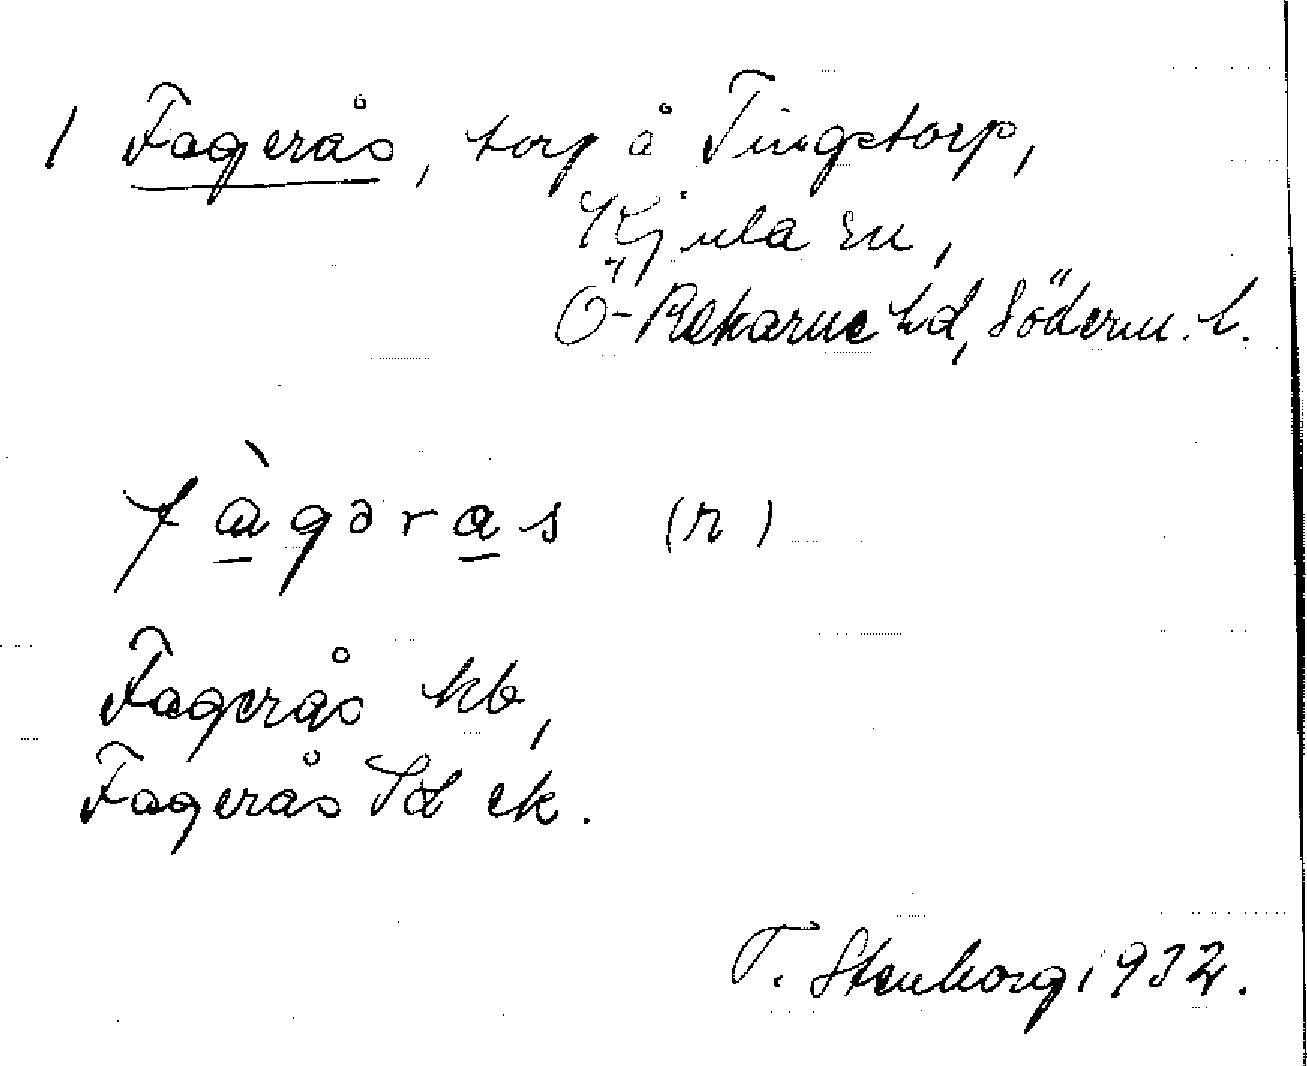 1 Fagerås, torp å Tingstorp,
Kjula sn,
Ö-Rekarne hd, Söderm. l.
fàgəras (n)
Fagerås kb,
Fagerås Sd ek.
T. Stenborg 1932.